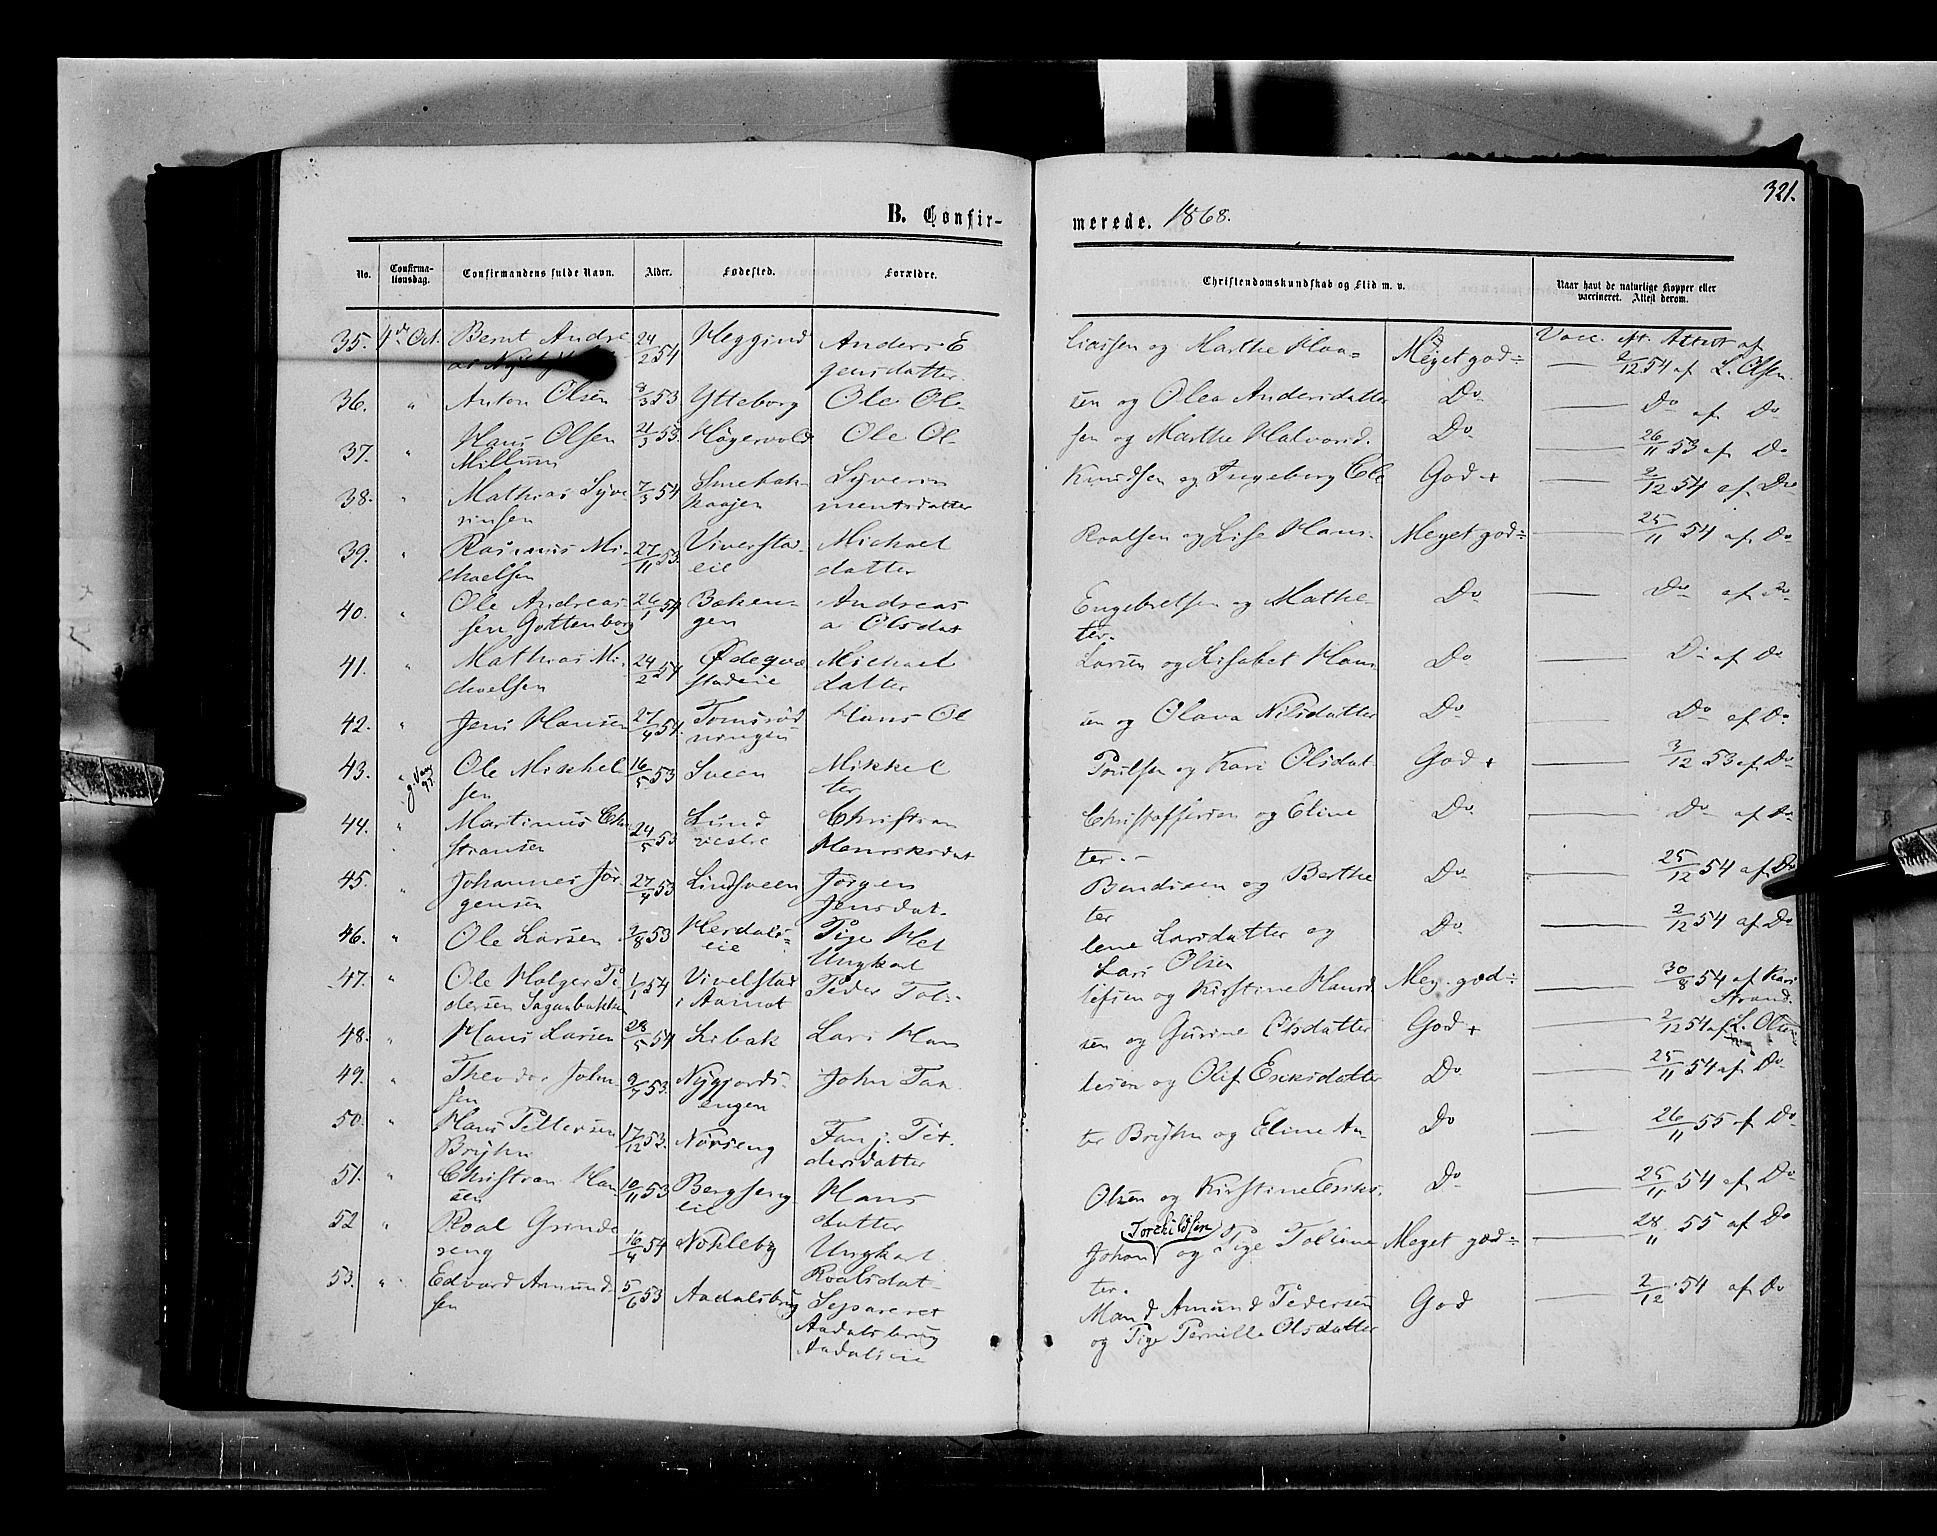 321.
B. Confirmerede. 1868.
No. Confirmationsdag. Confirmandens fulde Navn. Alder. Fødested. Forældre. Christendomskundskab og Flid m. v. Naar havt de naturlige Kopper eller vaccineret. Attest derom.
35. 4de Oct. Bernt Andre 24/2 54 Heggind Anders E liassen og Marthe Haa= Meget god ÷ Vacc. Attest af
gensdatter. — 2/12 54 af L. Olsen.
36. " Anton Olsen 8/3 53 Ytteborg Ole Ol- sen og Olea Andersdatter Do — Do af Do
37. " Hans Olsen 21/3 53. Høgervold Ole Ol- sen og Marthe Halvorsd. Do — 26/11 53 af Do
Millum
38. " Mathias Syve 7/3 54 Smebak- Syverin Knudsen og Ingeborg Cle God + — 2/12 54 af Do
rinsen haajen mentsdatter
39. " Rasmus Mi- 27/11 53. Viverstad- Michael Roalsen og Lise Hans- Meget god ÷ — 25/11 54 af Do
chaelsen eie datter
40. " Ole Andreas- 26/1 54 Baken- Andreas Engebretsen og Mathe- Do — Do af Do
sen Gottenborg gen a Olsdat ter.
41. " Mathias Mi- 24/2 54 Michael Larsen og Lisabet Hans Do — Do af Do
chaelsen stadeie datter
42. " Jens Hansen 27/4 54. Tomsrød Hans Ol sen og Olava Nilsdatter Do — Do af Do
ningen
43. " Ole Mikkel 16/5 53 Sveen Mikkel Poulsen og Kari Olsdat God + — 3/12 53 af Do
sen ter
44. " Martinus Chri 24/5 53 Lund Christian Christoffersen og Eline Do — Do af Do
stiansen vestre Henriksdat ter.
45. " Johannes Jør- 27/4 53 Lindsveen Jørgen Bendixen og Berthe Do — 25/12 54 af Do
gensen Jensdat- ter
46. " Ole Larsen 2/8 53 Herdals- Pige Hel lene Larsdatter og Do — 2/12 54 af Do
eie Ungkarl Lars Olsen
47. " Ole Holger Pe 1/1 54 Vivelstad Peder Tol- lefsen og Kirstine Hansd Meg. god ÷ — 30/8 54 af Kari
dersen Saganbakken i Aamot Strand.
48. " Hans Larsen 28/5 54 Kibak Lars Han sen og Gurine Olsdatter God + — 2/12 54 af L. Olsen
49. " Theodor John- 9/7 53. Nygjords- John Tan- lesen og Olif Eriksdatter Do — 25/11 54 af Do
sen engen
50. " Hans Pettersen 17/12 53. Nørseng Fanj. Pet- ter Bryhn og Eline An- Do — 26/11 55 af Do
Bryhn dersdatter
51. " Christian Han- 10/11 53 Bergseng- Hans Olsen og Kirstine Eriks- Do — 25/11 54 af Do
sen eie datter
52 " Roal Grinde 16/4 54 Nokleby Ungkarl Johan Torchildsen og Pige Toline Meget god ÷ — 28/11 55 af Do
seng Roalsdat- ter.
53. " Edvard Amund 5/6 53 Aadalsbrug Separeret Mand Amund Pedersen God — 2/12 54 af Do
sen Aadalsbrug og Pige Pernille Olsdatter
Aadalseie